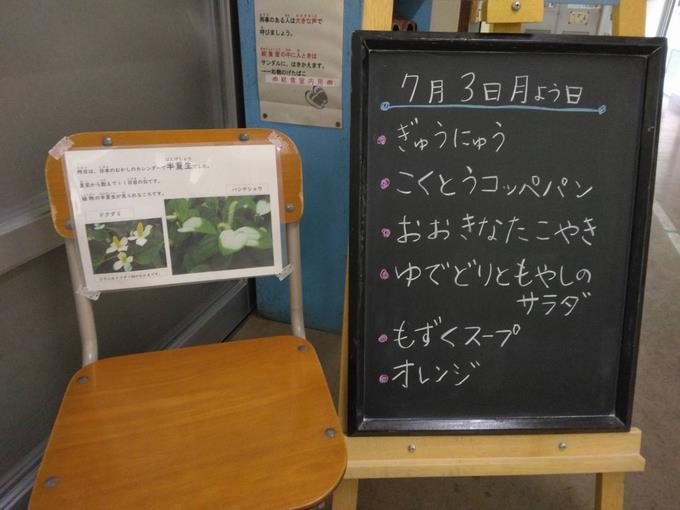 用事のある人は大きな声で
呼びましょう。
給食室の中に入るときは
サンダルに、はきかえます。
給食室内用
7月3日月よう日
ぎゅうにゅう
こくとうコッペパン
おおきなたこやき
ゆでどりともやしの
サラダ
もずくスープ
オレンジ
昨日は、日本のむかしのカレンダーで半夏生でした。
はんげしょう
夏至から数えて11日目の日です。
植物の半夏生が見られるころです。
ドクダミ
ハンゲショウ